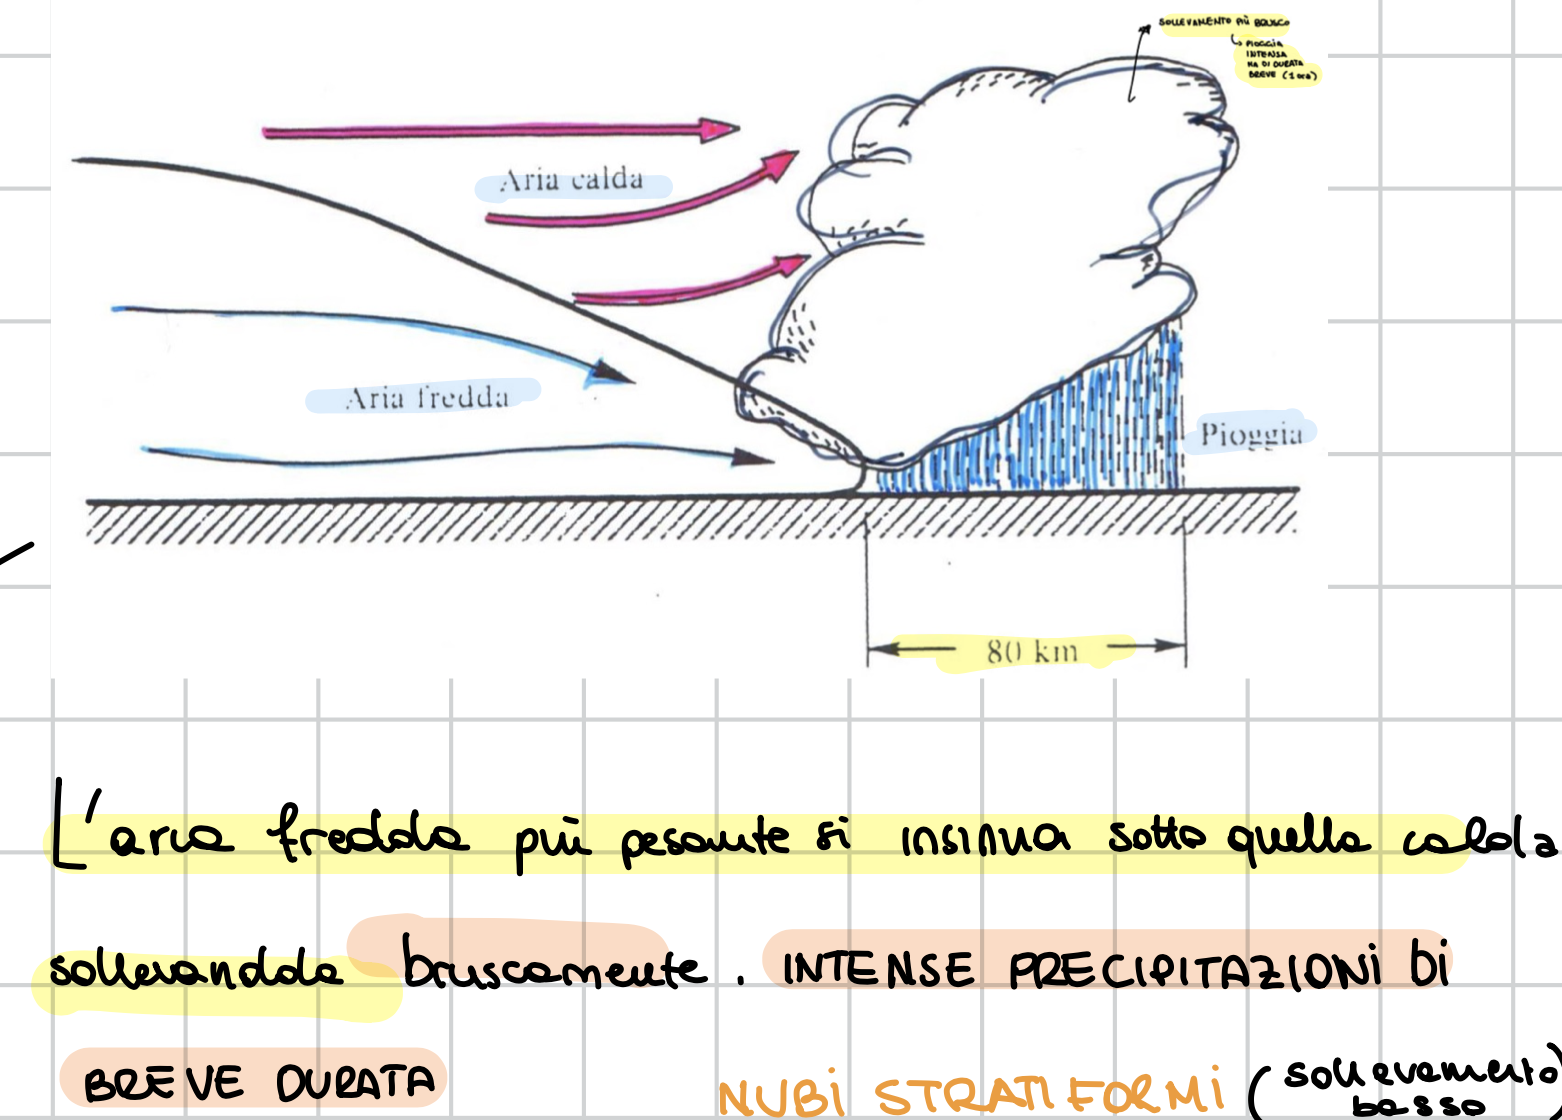 SOLLEVAMENTO PIÙ BRUSCO
↳ PIOGGIA
INTENSA
MA DI DURATA
BREVE (1 ora)
Aria calda
Aria fredda
Pioggia
80 km
L'aria fredda più pesante si insinua sotto quella calda
sollevandola bruscamente. INTENSE PRECIPITAZIONI DI
BREVE DURATA
NUBI STRATIFORMI (sollevamento
basso